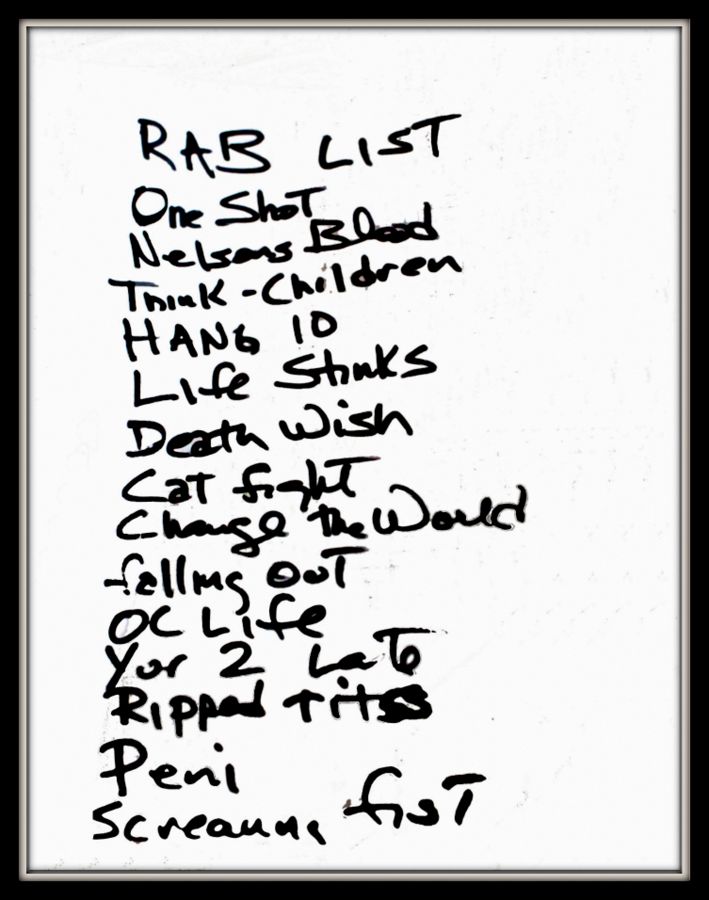 RAB LIST
One Shot
Nelsons Blood
Think - Children
HANG 10
Life Stinks
Death Wish
Cat fight
Change the World
falling out
OC Life
Yor 2 Late
Ripped Tits
Peni
Screaming fist